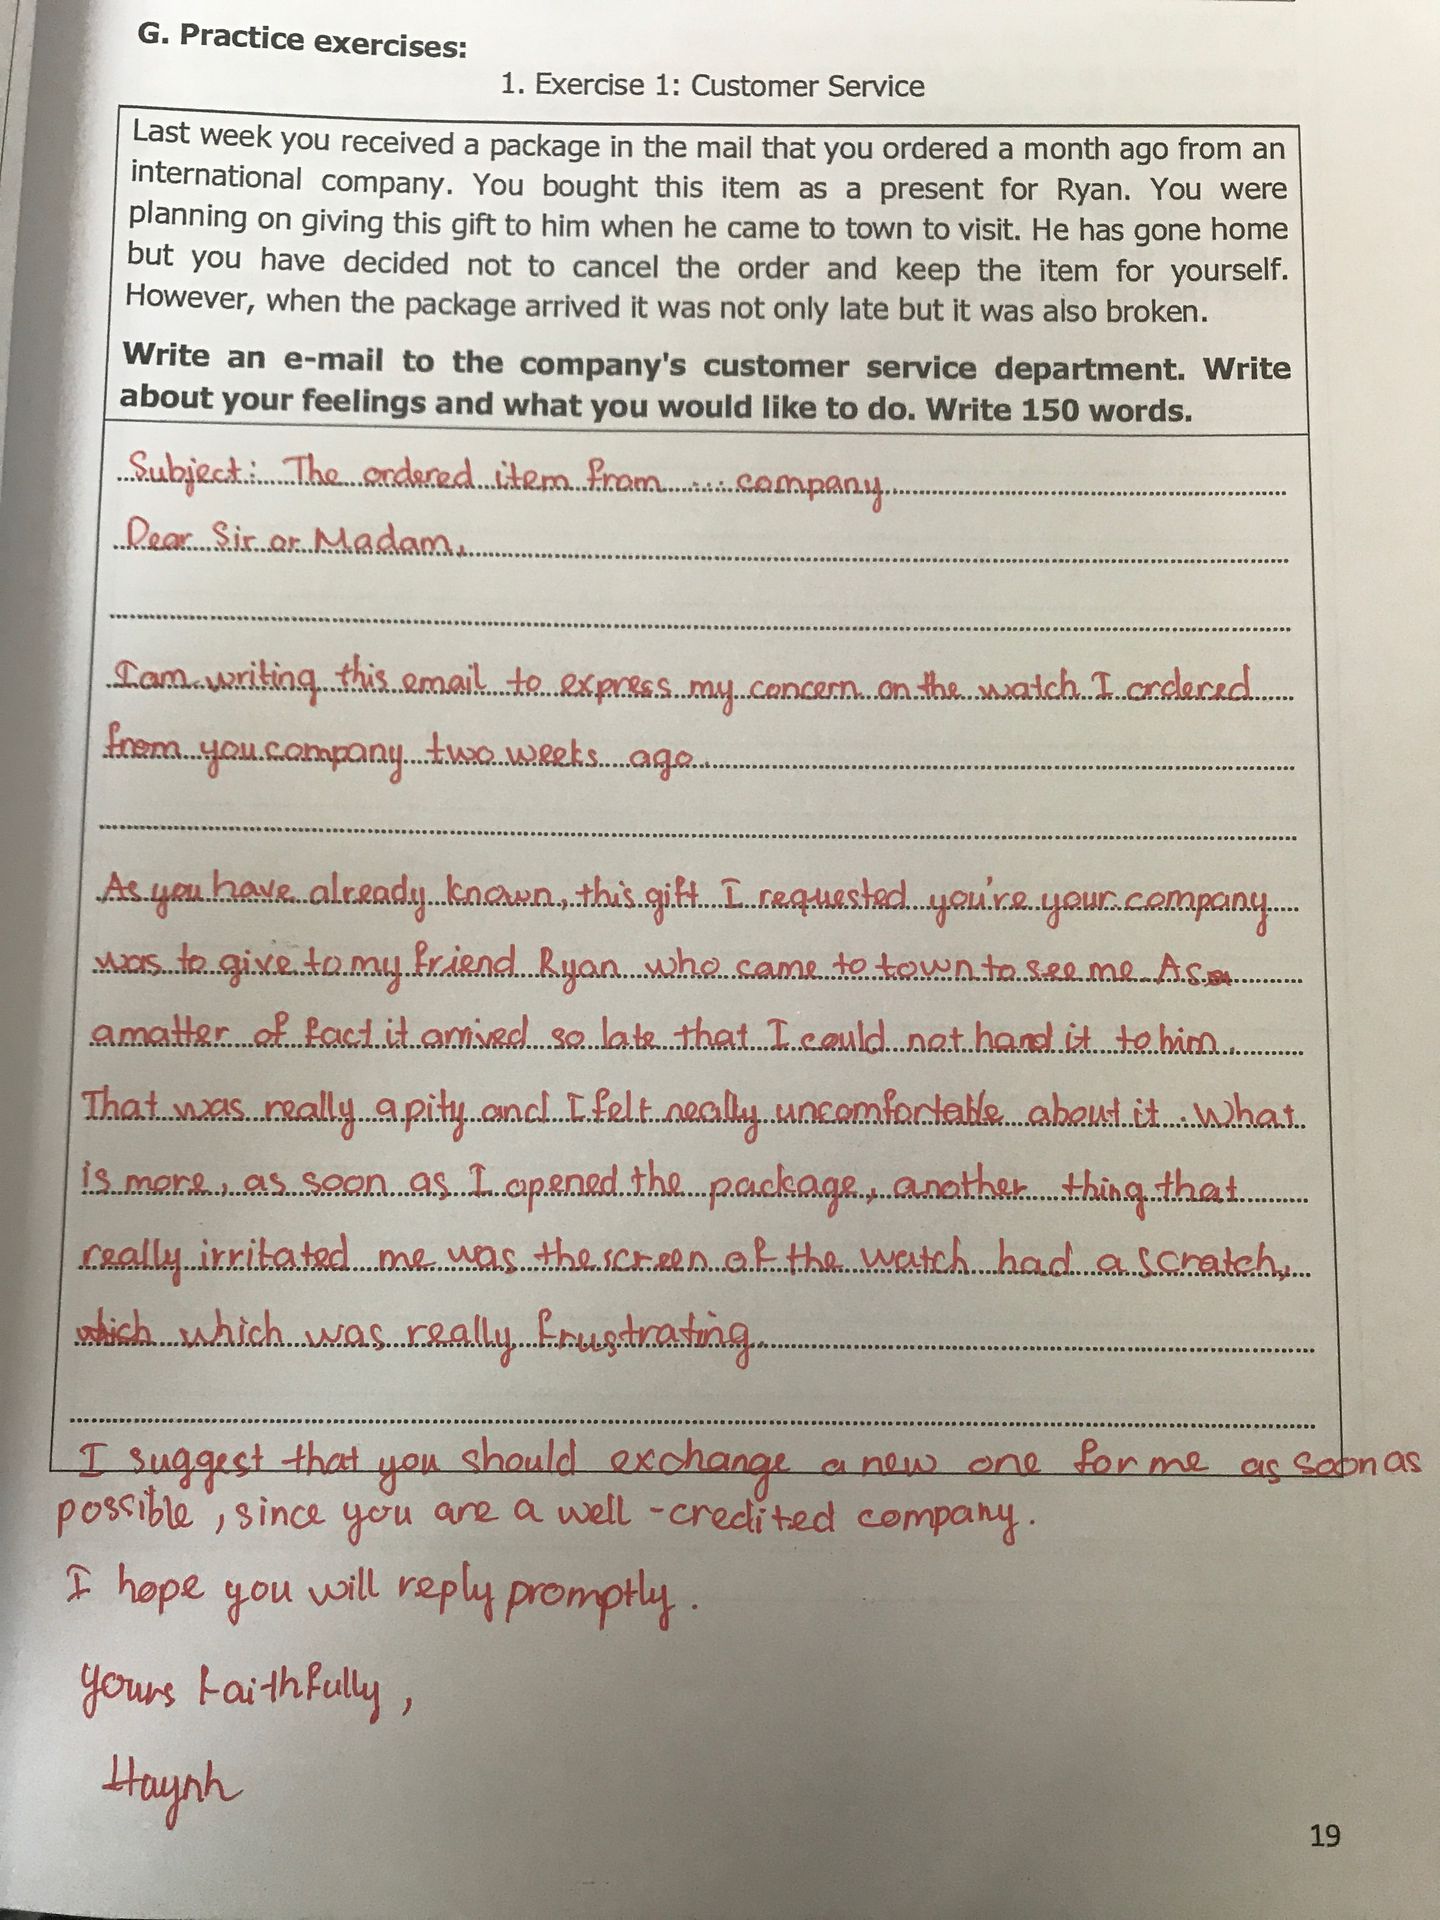 G. Practice exercises:
1. Exercise 1: Customer Service
Last week you received a package in the mail that you ordered a month ago from an
international company. You bought this item as a present for Ryan. You were
planning on giving this gift to him when he came to town to visit. He has gone home
but you have decided not to cancel the order and keep the item for yourself.
However, when the package arrived it was not only late but it was also broken.
Write an e-mail to the company's customer service department. Write
about your feelings and what you would like to do. Write 150 words.
Subject: The ordered item from ... company
Dear Sir or Madam,
I am writing this email to express my concern on the watch I ordered
from you company two weeks ago.
As you have already known, this gift I requested you're your company
was to give to my friend Ryan who came to town to see me. As
a matter of fact it arrived so late that I could not hand it to him.
That was really a pity and I felt really uncomfortable about it. What
is more, as soon as I opened the package, another thing that
really irritated me was the screen of the watch had a scratch,
which which was really frustrating.
I suggest that you should exchange a new one for me as soon as
possible, since you are a well-credited company.
I hope you will reply promptly.
Yours faithfully,
Haynh
19